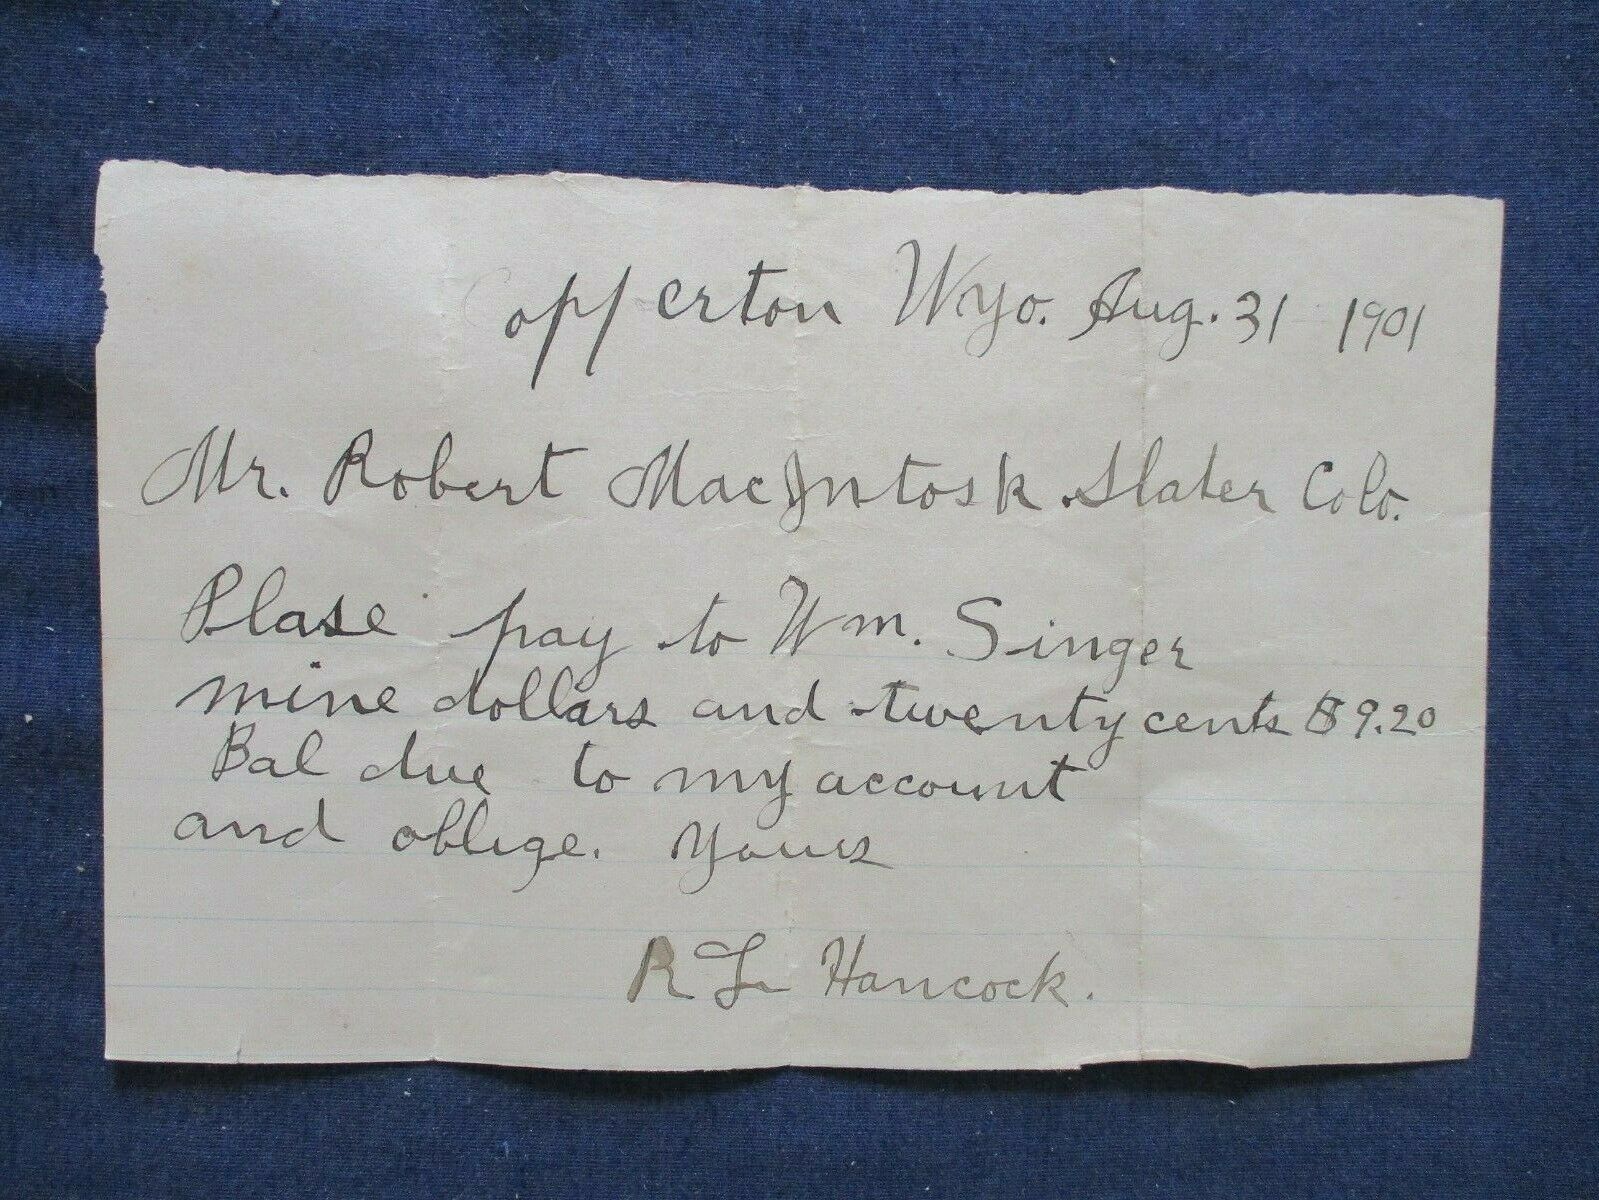 Copperton Wyo. Aug. 31 1901
Mr. Robert MacIntosk Slater Colo.
Plase pay to Wm. Singer
nine dollars and twenty cents $9.20
Bal due to my account
and oblige. Yours
R L Hancock.